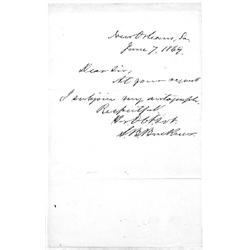 New Orleans, La.
June 7, 1869.
Dear Sir,
At your request
I subjoin my autograph.
Respectfully
Yr Obt Svt.
S. B. Buckner.